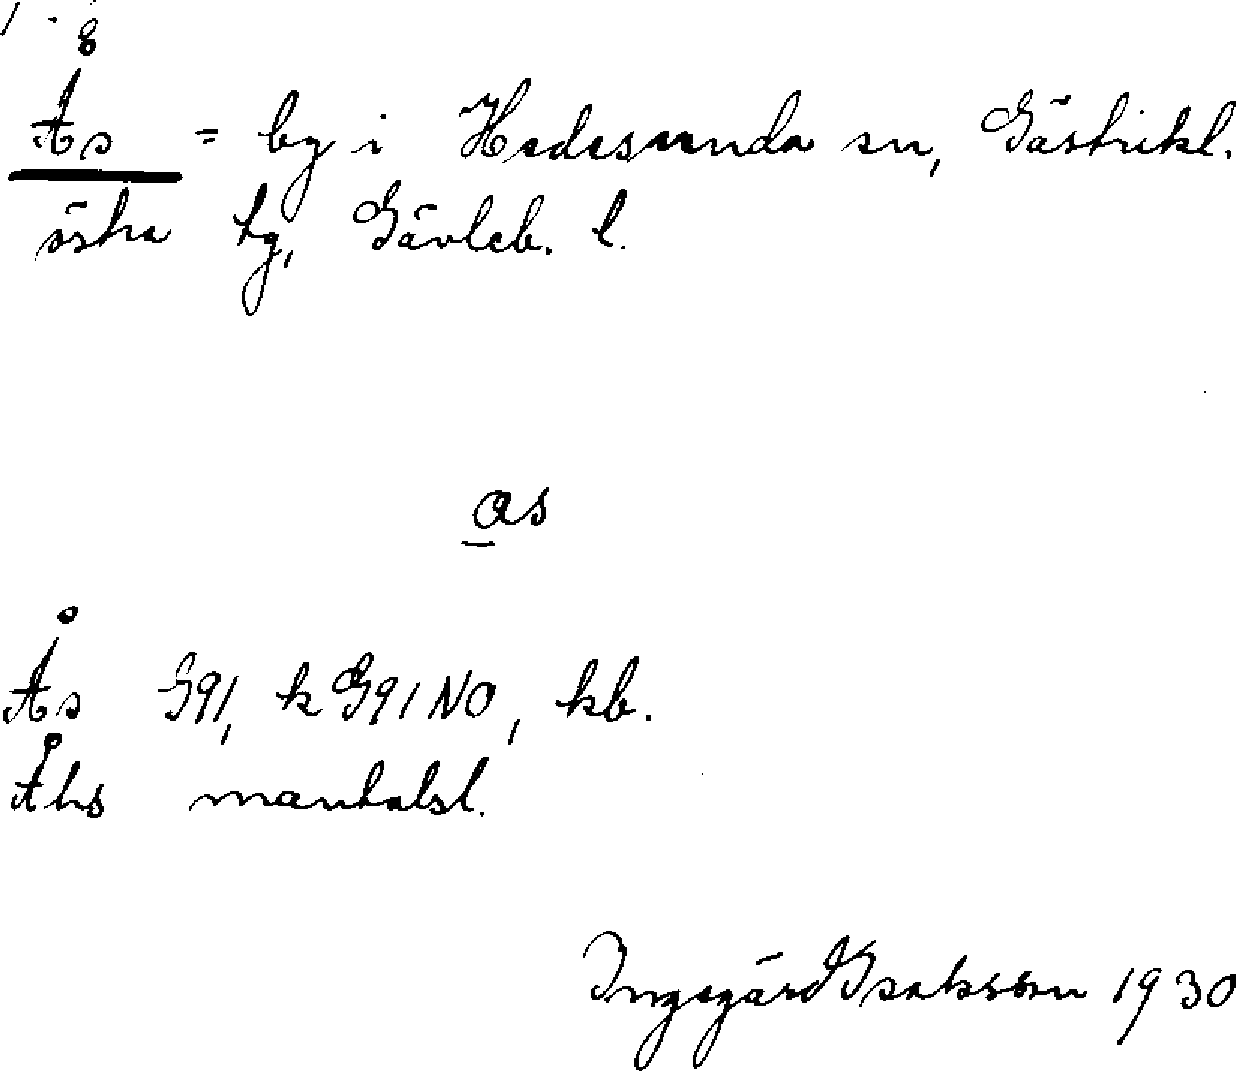 Ås = by i Hedesunda sn, Gästrikl.
östra tg, Gävleb. l.
as
Ås G91, k G91 NO, kb.
Åhs mantalsl.
Ingegärd Isaksson 1930